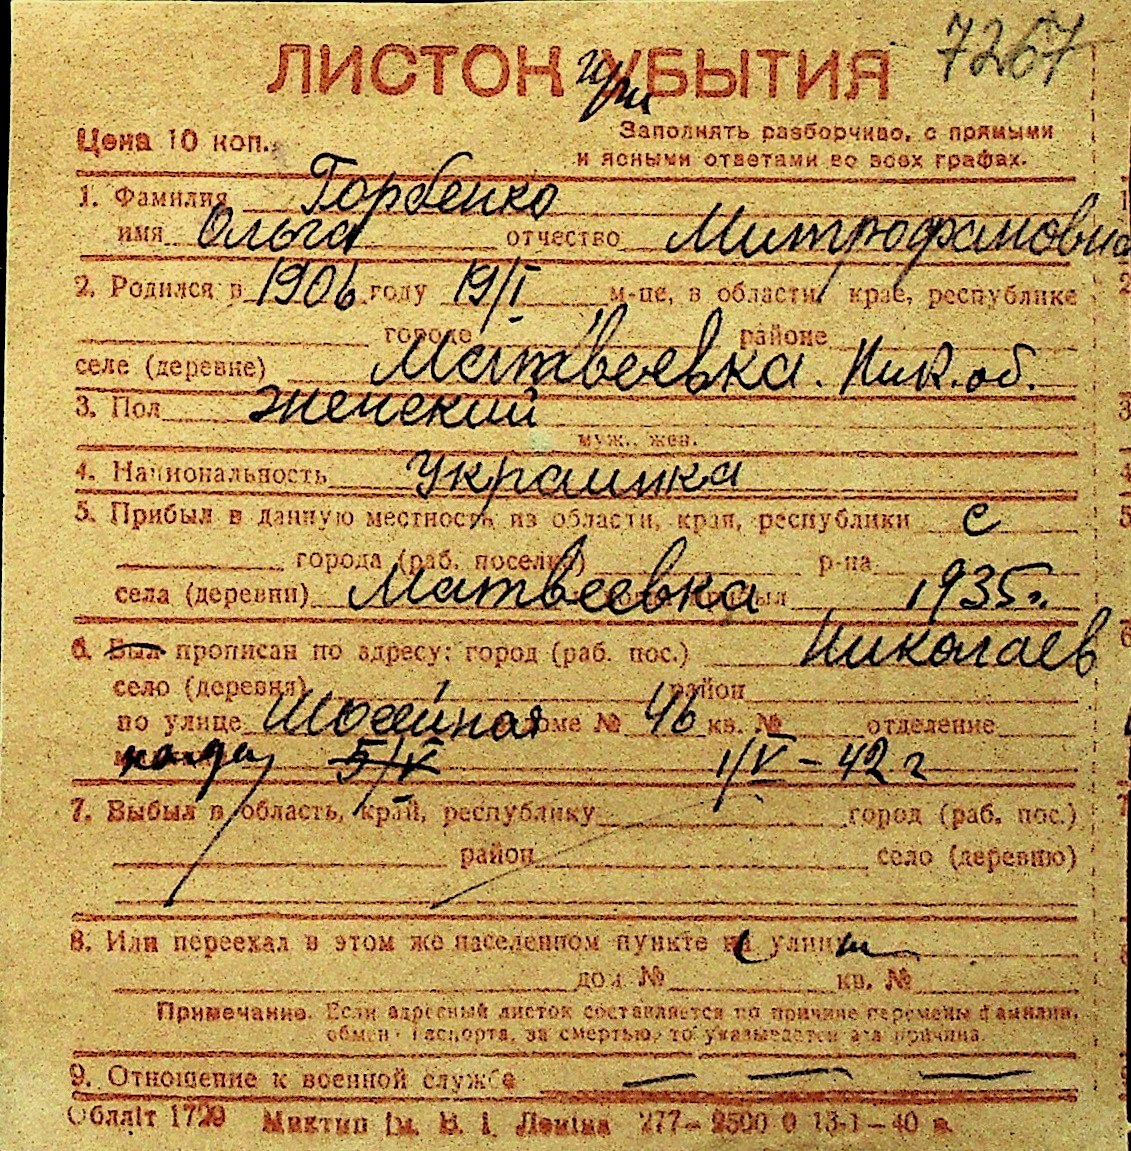 7267
ЛИСТОК при УБЫТИЯ
Цена 10 коп.
Заполнять разборчиво, с прямыми
и ясными ответами во всех графах.
1. Фамилия Горбенко
имя Ольга отчество Митрофановна
2. Родился в 1906 году 19/I м-це, в области, крае, республике
городе районе
селе (деревне) Матвеевка. Ник. об.
3. Пол женский
муж., жен.
4. Национальность украинка
5. Прибыл в данную местность из области, края, республики с
города (раб. поселка) р-на
села (деревни) Матвеевка прибыл 1935 г.
6. Был прописан по адресу: город (раб. пос.) Николаев
село (деревня) район
по улице Шоссейная доме № 46 кв. № отделение
когда 5/V 1/V - 42 г
7. Выбыл в область, край, республику город (раб. пос.)
район село (деревню)
8. Или переехал в этом же населенном пункте с улицы
дом № кв. №
Примечание. Если адресный листок составляется по причине перемены фамилии,
обмен паспорта, за смертью, то указывается эта причина.
9. Отношение к военной службе — — —
Облліт 1729 Миктип ім. В. І. Леніна 277—2500 0 13-1—40 в.